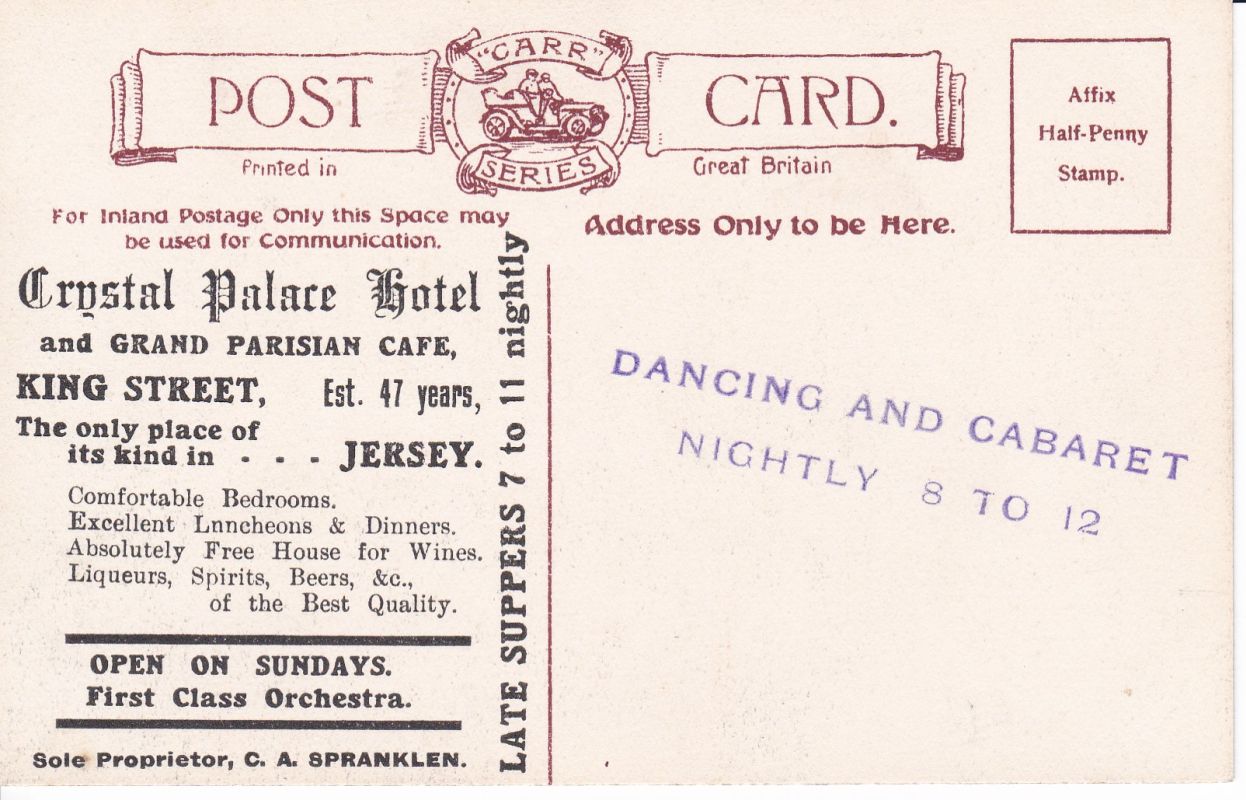 POST "CARR" SERIES CARD.
Printed in Great Britain
Affix
Half-Penny
Stamp.
For Inland Postage Only this Space may
be used for Communication.
Address Only to be Here.
Crystal Palace Hotel
and GRAND PARISIAN CAFE,
KING STREET, Est. 47 years,
The only place of
its kind in - - - JERSEY.
Comfortable Bedrooms.
Excellent Lnncheons & Dinners.
Absolutely Free House for Wines.
Liqueurs, Spirits, Beers, &c.,
of the Best Quality.
OPEN ON SUNDAYS.
First Class Orchestra.
Sole Proprietor, C. A. SPRANKLEN.
LATE SUPPERS 7 to 11 nightly
DANCING AND CABARET
NIGHTLY 8 TO 12